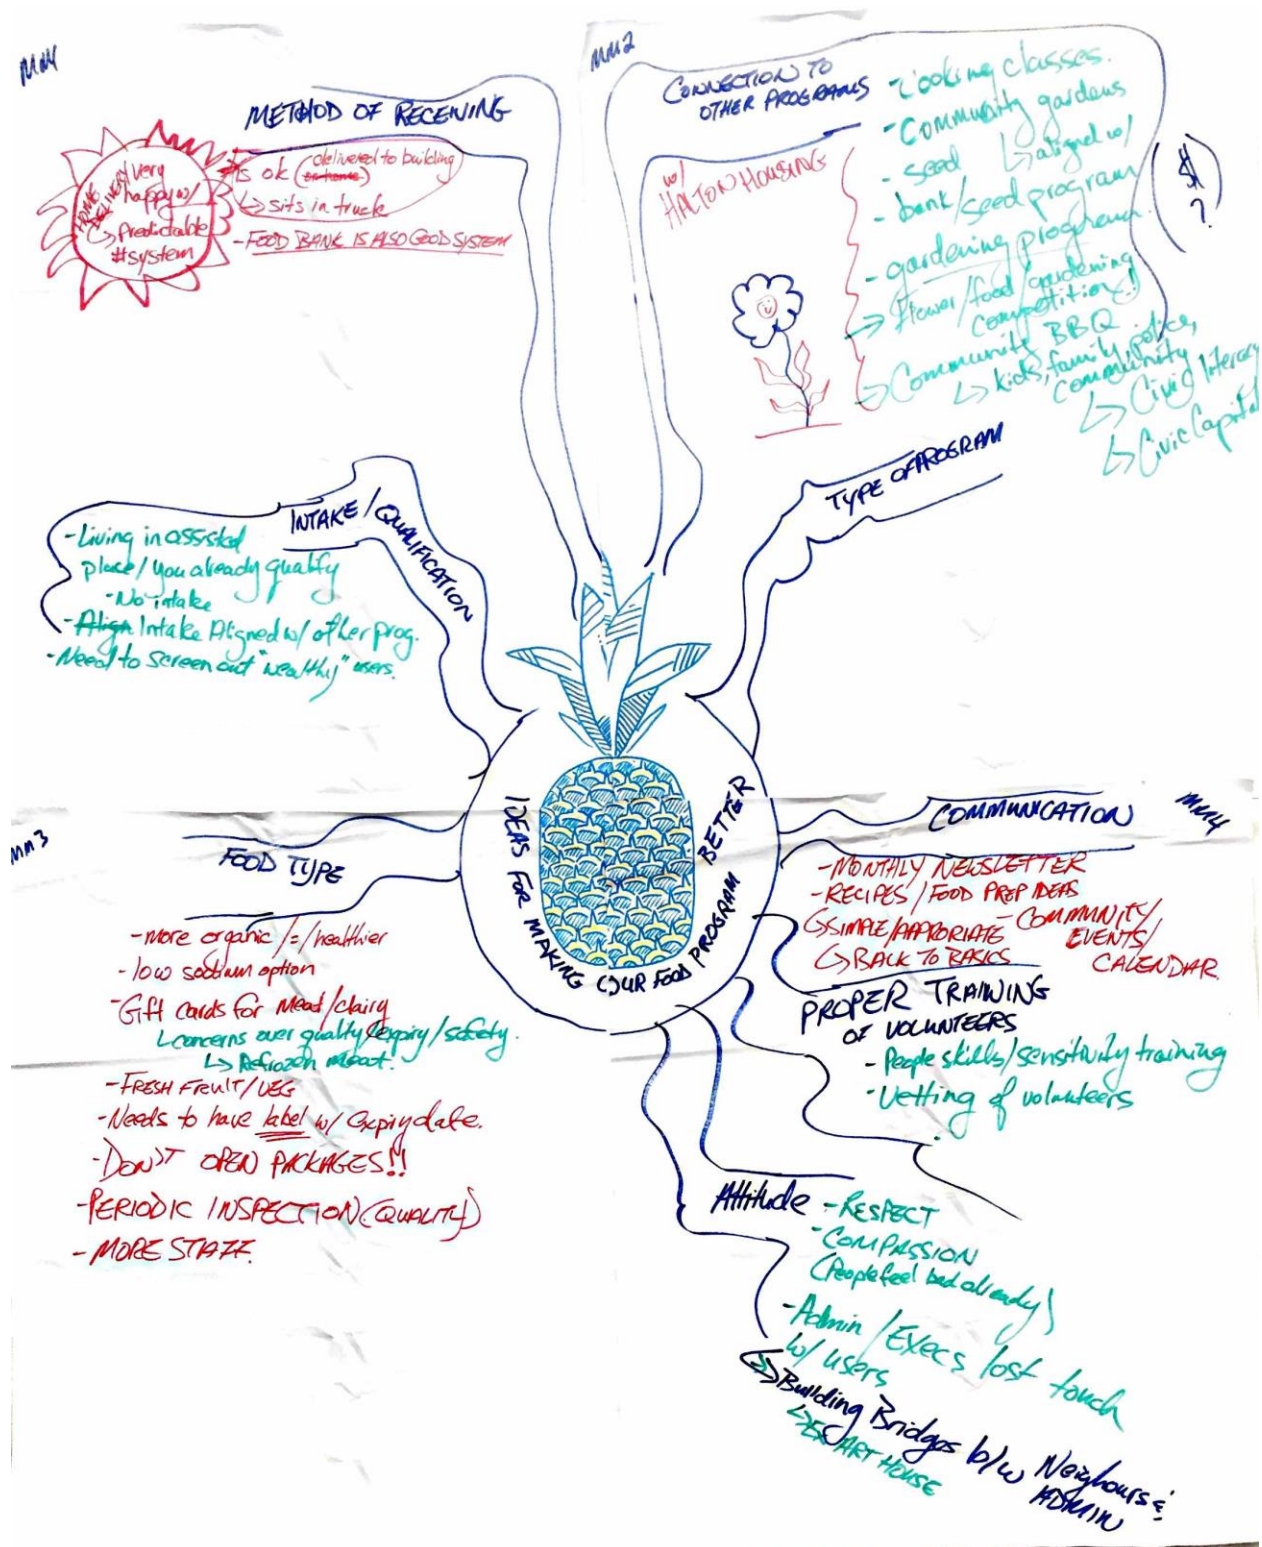 MM1
METHOD OF RECEIVING
HOME DELIVERY
very
happy w/
↳ Predictable
#system
is ok (delivered to building
or home)
↳ sits in truck
- FOOD BANK IS ALSO GOOD SYSTEM
MM2
CONNECTION TO
OTHER PROGRAMS
w/
HALTON HOUSING
- Cooking classes.
- Community gardens
↳ aligned w/
- seed
- bank/seed program
- gardening program.
→ Flower/food/gardening
competition!
→ Community BBQ
↳ kids, family, police,
community
↳ Civic literacy
↳ Civic Capital
($
?)
TYPE OF PROGRAM
INTAKE / QUALIFICATION
- Living in assisted
place / you already qualify
- No intake
- Align Intake Aligned w/ other prog.
- Need to screen out "wealthy" users.
IDEAS FOR MAKING OUR FOOD PROGRAM BETTER
MM3
FOOD TYPE
- more organic /=/ healthier
- low sodium option
- Gift cards for meat/dairy
↳ concerns over quality/expiry/safety.
↳ Refrozen meat.
- FRESH FRUIT/VEG
- Needs to have label w/ expiry date.
- DON'T OPEN PACKAGES!!
- PERIODIC INSPECTION (QUALITY)
- MORE STAFF.
MM4
COMMUNICATION
- MONTHLY NEWSLETTER
- RECIPES / FOOD PREP IDEAS
↳ SIMPLE/APPRORIATE
↳ BACK TO BASICS
- COMMUNITY/
EVENTS/
CALENDAR.
PROPER TRAINING
OF VOLUNTEERS
- People skills/sensitivity training
- Vetting of volunteers
Attitude
- RESPECT
- COMPASSION
(People feel bad already)
- Admin / Execs lost touch
w/ users
↳ Building Bridges b/w Neighours &
ADMIN
↳ EX ART HOUSE